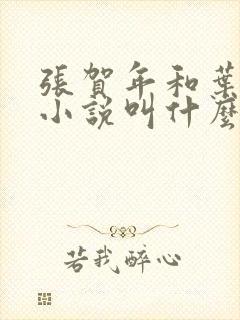 張賀年和葉
小說叫什麼
若我醉心